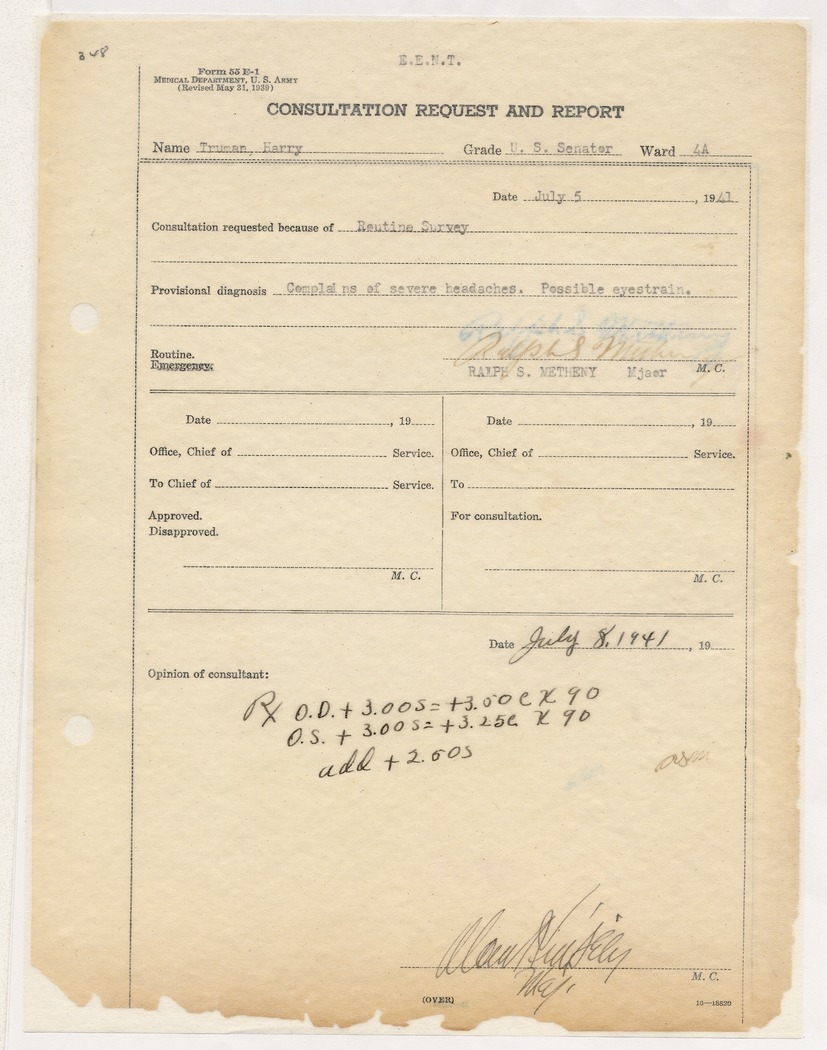 348
E.E.N.T.
Form 55 E-1
MEDICAL DEPARTMENT, U. S. ARMY
(Revised May 31, 1939)
CONSULTATION REQUEST AND REPORT
Name Truman, Harry Grade U. S. Senator Ward 4A
Date July 5, 1941
Consultation requested because of Routine Survey
Provisional diagnosis Complains of severe headaches. Possible eyestrain.
Ralph S Metheny
Routine.
Emergency.
RALPH S. METHENY Mjaor M. C.
Date , 19
Office, Chief of Service.
To Chief of Service.
Approved.
Disapproved.
M. C.
Date , 19
Office, Chief of Service.
To
For consultation.
M. C.
Date July 8, 1941, 19
Opinion of consultant:
Rx O.D. + 3.00 S = +3.50 C X 90
O.S. + 3.00 S = +3.25 C X 90
add + 2.50 S
Maj.
M. C.
(OVER)